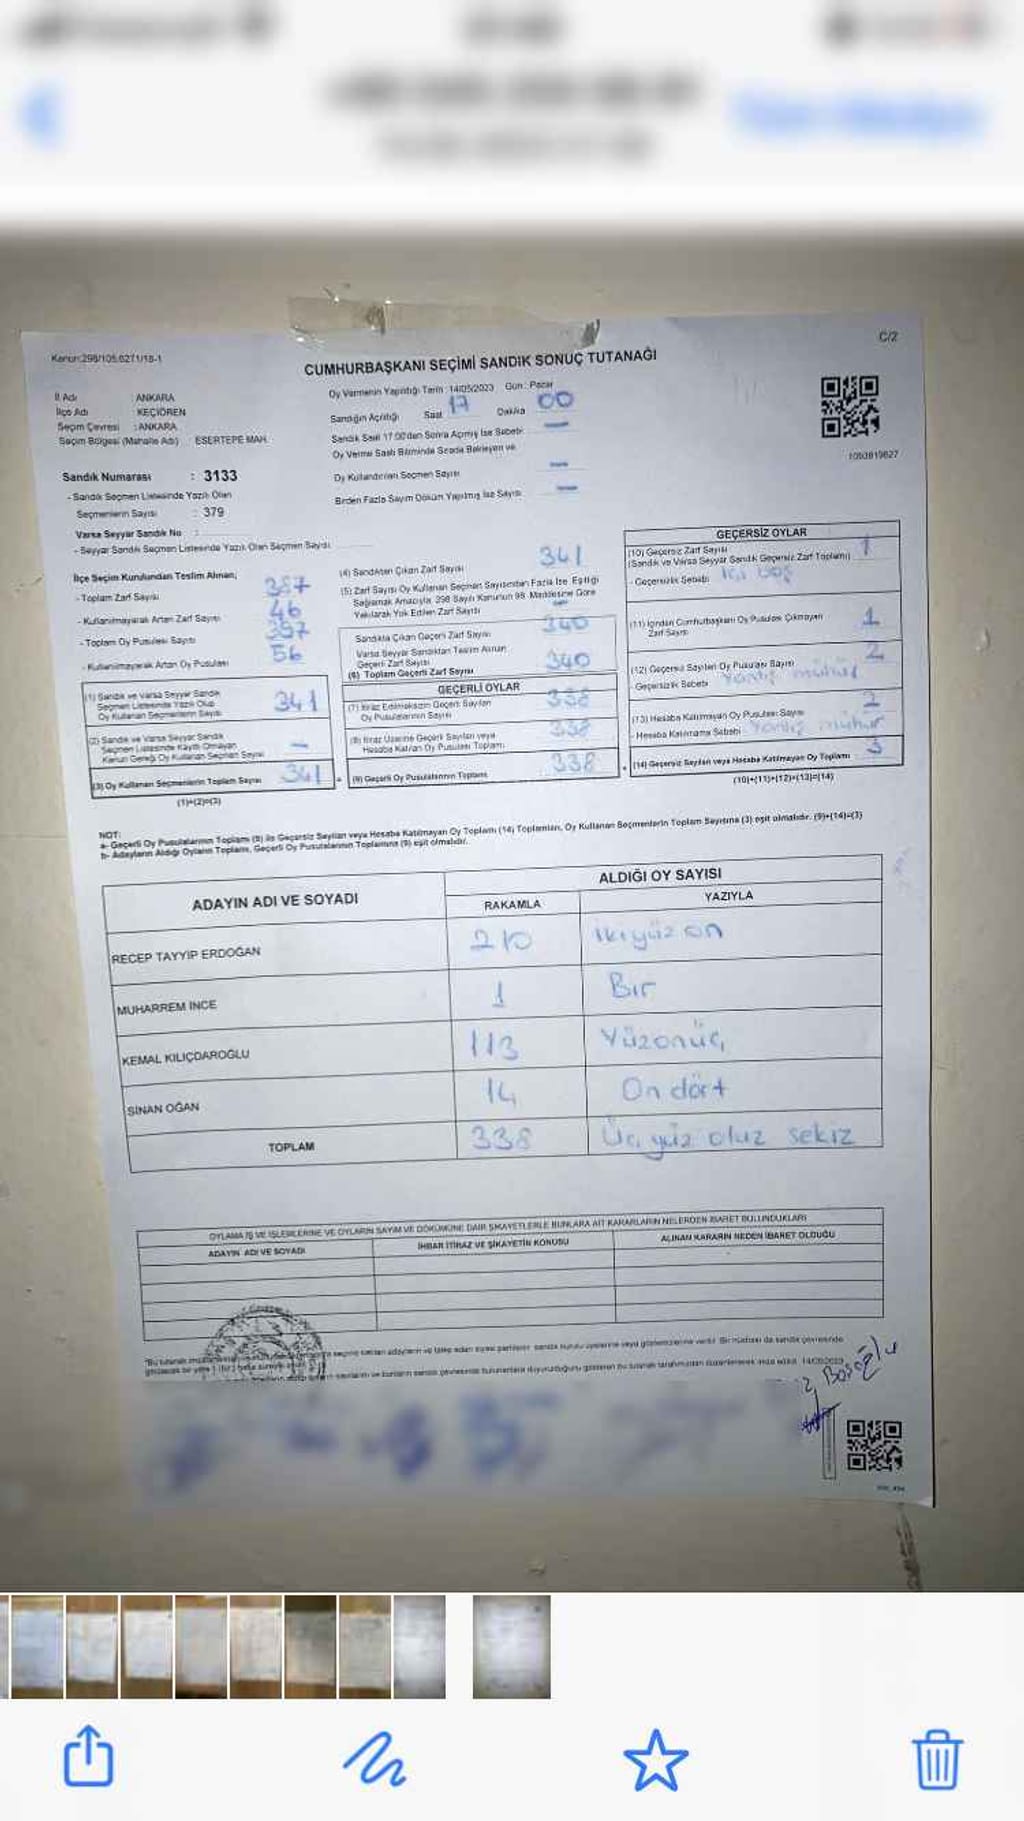 C/2
Kanun:298/105,6271/18-1
CUMHURBAŞKANI SEÇİMİ SANDIK SONUÇ TUTANAĞI
İl Adı : ANKARA
İlçe Adı : KEÇİÖREN
Seçim Çevresi : ANKARA
Seçim Bölgesi (Mahalle Adı) : ESERTEPE MAH.
Oy Vermenin Yapıldığı Tarih : 14/05/2023 Gün : Pazar
Sandığın Açıldığı Saat 17 Dakika 00
Sandık Saat 17.00'den Sonra Açılmış İse Sebebi —
Oy Verme Saati Bitiminde Sırada Bekleyen ve
Oy Kullandırılan Seçmen Sayısı —
Birden Fazla Sayım Döküm Yapılmış İse Sayısı —
1093819827
Sandık Numarası : 3133
- Sandık Seçmen Listesinde Yazılı Olan
Seçmenlerin Sayısı : 379
Varsa Seyyar Sandık No :
- Seyyar Sandık Seçmen Listesinde Yazılı Olan Seçmen Sayısı
İlçe Seçim Kurulundan Teslim Alınan;
- Toplam Zarf Sayısı 387
- Kullanılmayarak Artan Zarf Sayısı 46
- Toplam Oy Pusulası Sayısı 397
- Kullanılmayarak Artan Oy Pusulası 56
(1) Sandık ve Varsa Seyyar Sandık
Seçmen Listesinde Yazılı Olup
Oy Kullanan Seçmenlerin Sayısı 341
(2) Sandık ve Varsa Seyyar Sandık
Seçmen Listesinde Kayıtlı Olmayan
Kanun Gereği Oy Kullanan Seçmen Sayısı —
(3) Oy Kullanan Seçmenlerin Toplam Sayısı 341
(1)+(2)=(3)
(4) Sandıktan Çıkan Zarf Sayısı 341
(5) Zarf Sayısı Oy Kullanan Seçmen Sayısından Fazla İse, Eşitliği
Sağlamak Amacıyla 298 Sayılı Kanunun 98. Maddesine Göre
Yakılarak Yok Edilen Zarf Sayısı —
Sandıkta Çıkan Geçerli Zarf Sayısı 340
Varsa Seyyar Sandıktan Teslim Alınan
Geçerli Zarf Sayısı
(6) Toplam Geçerli Zarf Sayısı 340
GEÇERLİ OYLAR
(7) İtiraz Edilmeksizin Geçerli Sayılan
Oy Pusulalarının Sayısı 338
(8) İtiraz Üzerine Geçerli Sayılan veya
Hesaba Katılan Oy Pusulası Toplamı 338
(9) Geçerli Oy Pusulalarının Toplamı 338
GEÇERSİZ OYLAR
(10) Geçersiz Zarf Sayısı 1
(Sandık ve Varsa Seyyar Sandık Geçersiz Zarf Toplamı)
- Geçersizlik Sebebi İçi boş
(11) İçinden Cumhurbaşkanı Oy Pusulası Çıkmayan
Zarf Sayısı 1
(12) Geçersiz Sayılan Oy Pusulası Sayısı 2
- Geçersizlik Sebebi Yanlış mühür
(13) Hesaba Katılmayan Oy Pusulası Sayısı 2
- Hesaba Katılmama Sebebi Yanlış mühür
(14) Geçersiz Sayılan veya Hesaba Katılmayan Oy Toplamı 3
(10)+(11)+(12)+(13)=(14)
NOT:
a- Geçerli Oy Pusulalarının Toplamı (9) ile Geçersiz Sayılan veya Hesaba Katılmayan Oy Toplamı (14) Toplamları, Oy Kullanan Seçmenlerin Toplam Sayısına (3) eşit olmalıdır. (9)+(14)=(3)
b- Adayların Aldığı Oyların Toplamı, Geçerli Oy Pusulalarının Toplamına (9) eşit olmalıdır.
ADAYIN ADI VE SOYADI
ALDIĞI OY SAYISI
RAKAMLA YAZIYLA
RECEP TAYYİP ERDOĞAN 210 İkiyüz on
MUHARREM İNCE 1 Bir
KEMAL KILIÇDAROĞLU 113 Yüzonüç
SİNAN OĞAN 14 On dört
TOPLAM 338 Üç yüz otuz sekiz
OYLAMA İŞ VE İŞLEMLERİNE VE OYLARIN SAYIM VE DÖKÜMÜNE DAİR ŞİKAYETLERLE BUNLARA AİT KARARLARIN NELERDEN İBARET BULUNDUKLARI
ADAYIN ADI VE SOYADI
İHBAR İTİRAZ VE ŞİKAYETİN KONUSU
ALINAN KARARIN NEDEN İBARET OLDUĞU